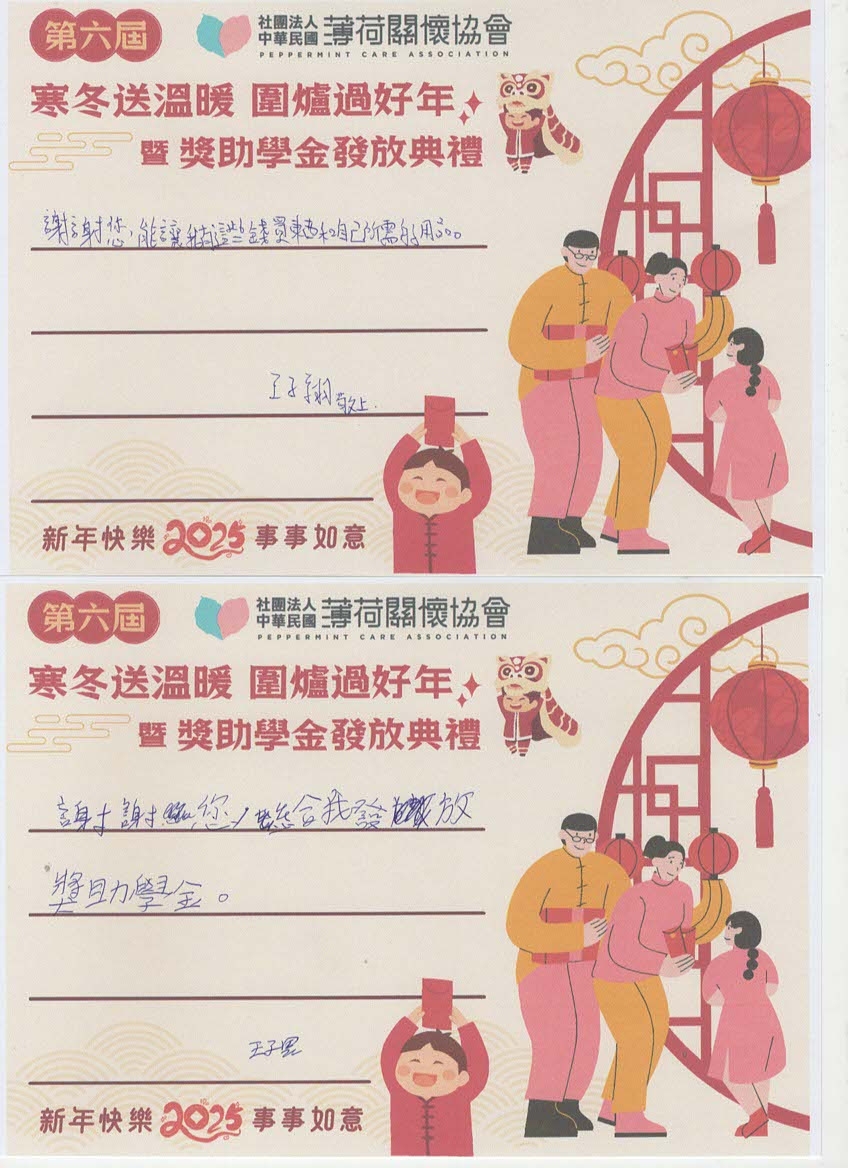 第六屆
社團法人
中華民國
薄荷關懷協會
PEPPERMINT CARE ASSOCIATION
寒冬送溫暖 圍爐過好年
暨 獎助學金發放典禮
謝謝您,能讓我有這些錢買東西和自己所需的用品。
王子翔 敬上.
新年快樂 2025 事事如意
第六屆
社團法人
中華民國
薄荷關懷協會
PEPPERMINT CARE ASSOCIATION
寒冬送溫暖 圍爐過好年
暨 獎助學金發放典禮
謝謝您,給我發放
獎助學金。
王子
新年快樂 2025 事事如意